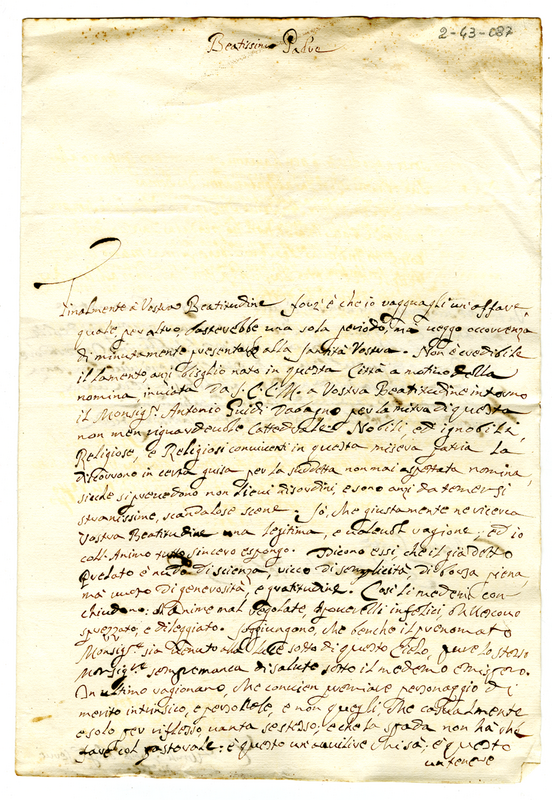 2-43-087
Beatissimo Padre
Finalmente à Vostra Beatitudine forz' è che io ragguagli un' affare,
quale per altro basterebbe una sola periodo, ma veggo occorrenza
di minutamente presentarlo alla Santità Vostra. Non è credibile
il lamento, anzi bisbiglio nato in questa Città a motivo della
nomina, inviata da S. C. C. M. a Vostra Beatitudine intorno
il Monsigr. Antonio Guidi Dabagno per la mitra di questa
non men riguardevole Cattedrale. Nobili, ed ignobili,
Religiose, e Religiosi conviventi in questa misera patria la
discorrono in certa guisa per la suddetta non mai aspettata nomina,
sicche si prevedono non lievi disordini, e sono anzi da temersi
stranissime, scandalose scene. Sò, che giustamente ne ricerca
Vostra Beatitudine una legitima, e valevole ragione; ed io
coll' Animo tutto sincero espongo. Dicono essi, che il già detto
Prelato è nudo di scienza, ricco di semplicità, di borza piena,
ma vuoto di generosità, e gratitudine. Così li medemi con
chiudono: Ah anime mal regolate, ah poverelli infelici, oh Vescovo
sprezzato, e dileggiato. Soggiungono, che benche il prenomato
Monsigre. sia venuto alla luce sotto di questo Cielo, pure lo stesso
Monsigre. sempre manca di salute sotto il medemo emisfero.
In ultimo ragionano, che convien premiare personaggio di
merito intrinsico, e personale, e non quegli, che casualmente
e solo per riflesso vanta se stesso; e che la spada non hà che
fare col pastorale: e questo un' avvilire chi sà; e questo
un tenere